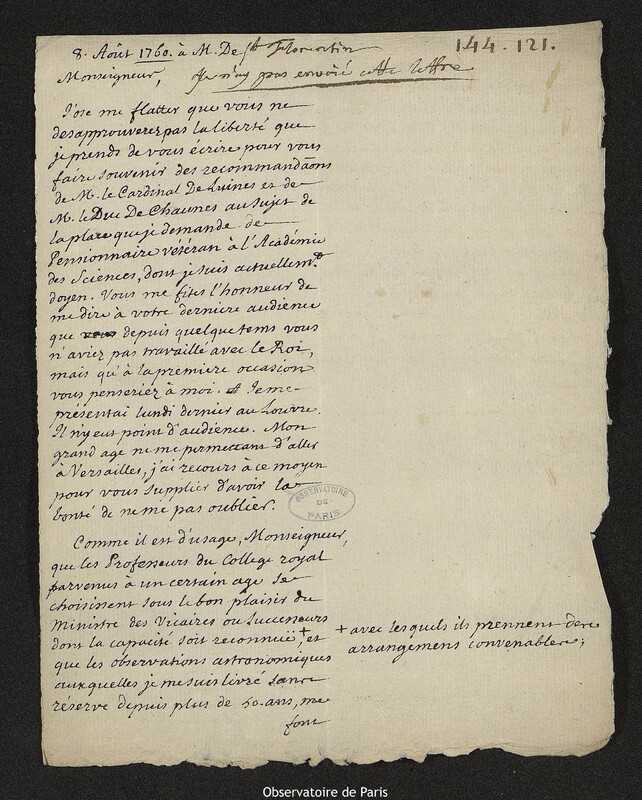 8. Août 1760. à M. De St Florentin
144-121.
Monseigneur, Je n'ay pas envoié cette lettre
J'ose me flatter que vous ne
desapprouverez pas la liberté que
je prends de vous écrire pour vous
faire souvenir des recommandãons
de M. le Cardinal De Luines et de
M. le Duc De Chaunes au Sujet de
la place que je demande de
Pensionnaire vétéran à l'Académie
des Sciences, dont je suis actuellemt.
doyen. Vous me fites l'honneur de
me dire à votre derniere audience
que depuis quelque tems vous
n'aviez pas travaillé avec le Roi,
mais qu'à la premiere occasion
vous penseriez à moi. Je me
présentai lundi dernier au Louvre.
Il n'y eut point d'audience. Mon
grand age ne me permettant d'aller
à Versailles, j'ai recours à ce moyen
pour vous supplier d'avoir la
bonté de ne me pas oublier.
OBSERVATOIRE
DE
PARIS
Comme il est d'usage, Monseigneur,
que les Professeurs du College royal
parvenus à un certain age se
choisissent sous le bon plaisir du
Ministre des Vicaires ou Successeurs
dont la capacité soit reconnuë, + et
que les observations astronomiques
auxquelles je me suis livré sans
réserve depuis plus de 50. ans, me
font
+ avec lesquels ils prennent des
arrangemens convenables;
Observatoire de Paris